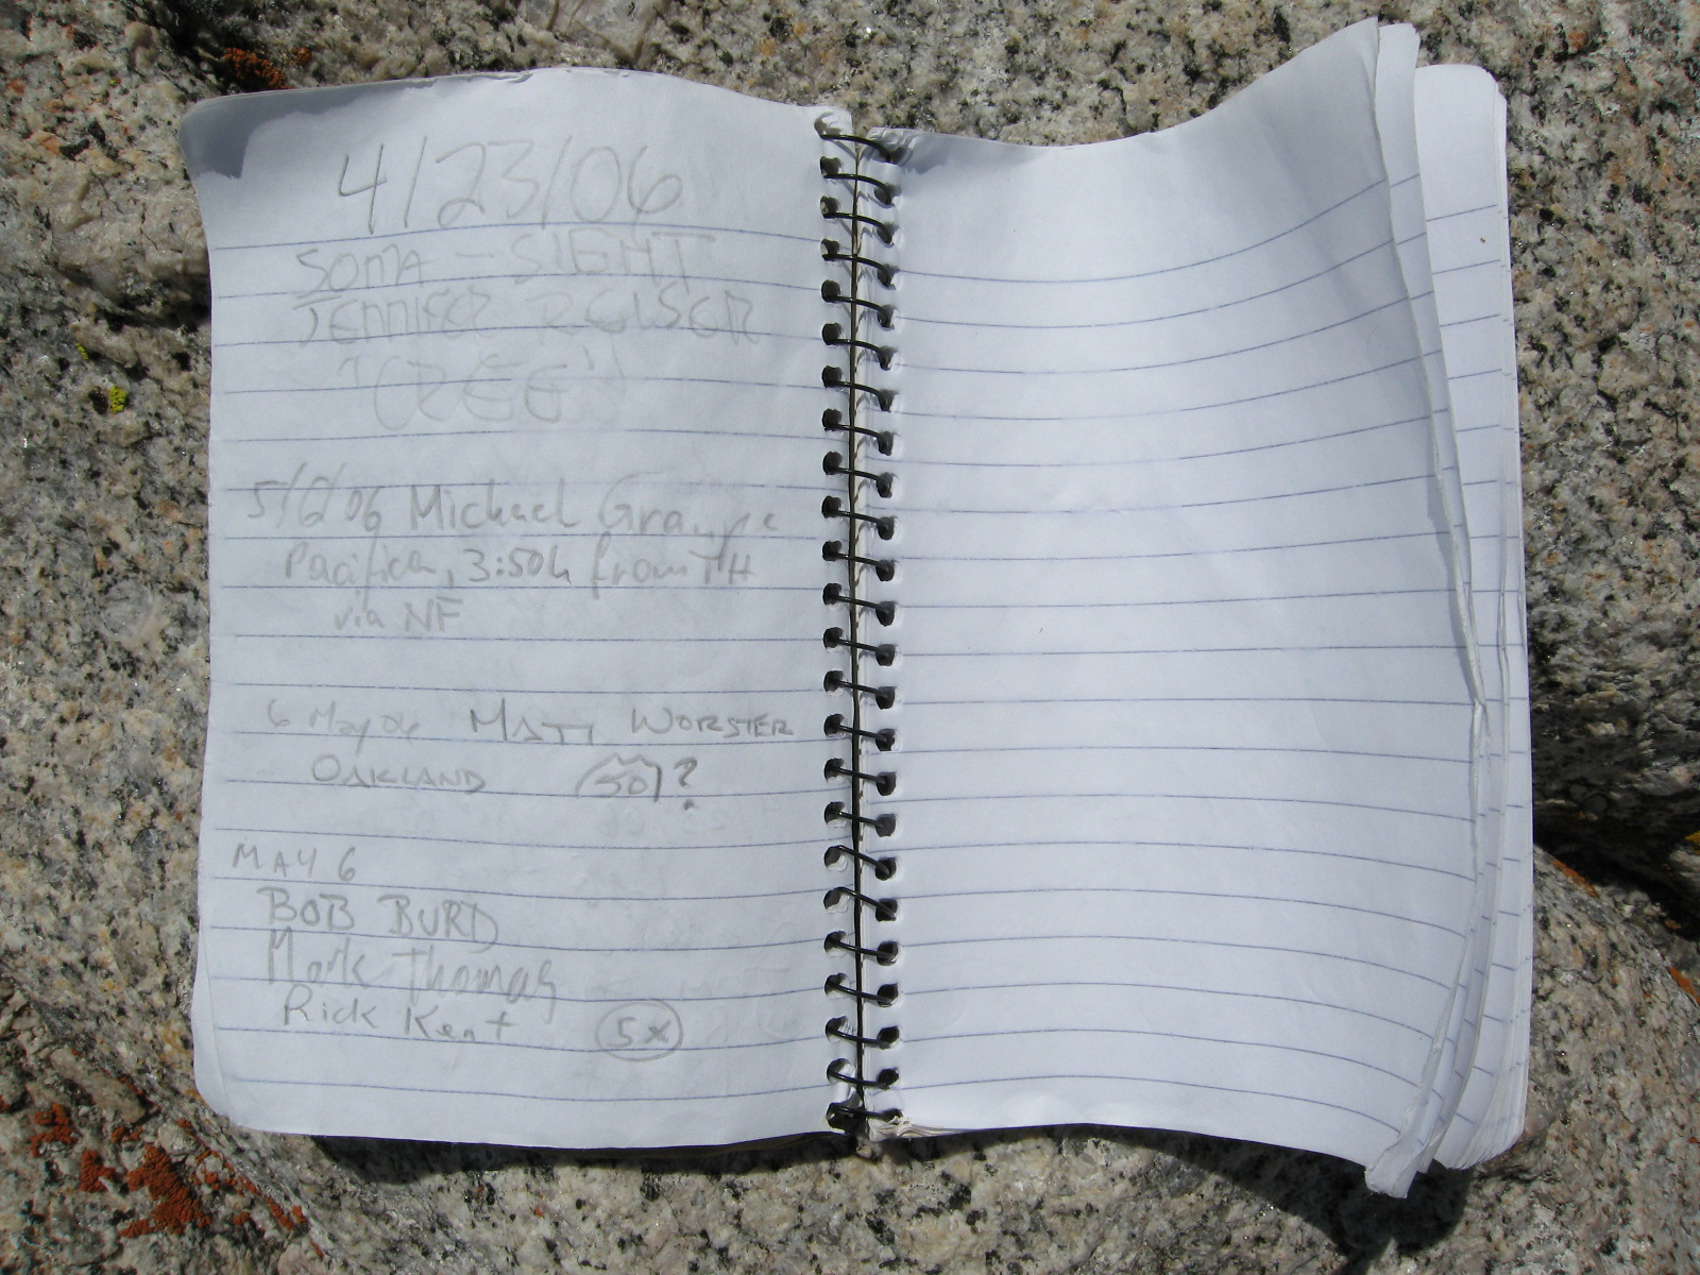 4/23/06
SOMA - SIENT
JENNIFER REISER
"CREE"
5/6/06 Michael
Pacifica, 3:50h from TH
via NF
6 May 06 MATT WORSTER
OAKLAND 50?
MAY 6
BOB BURD
Mark Thomas
Rick Kent 5x